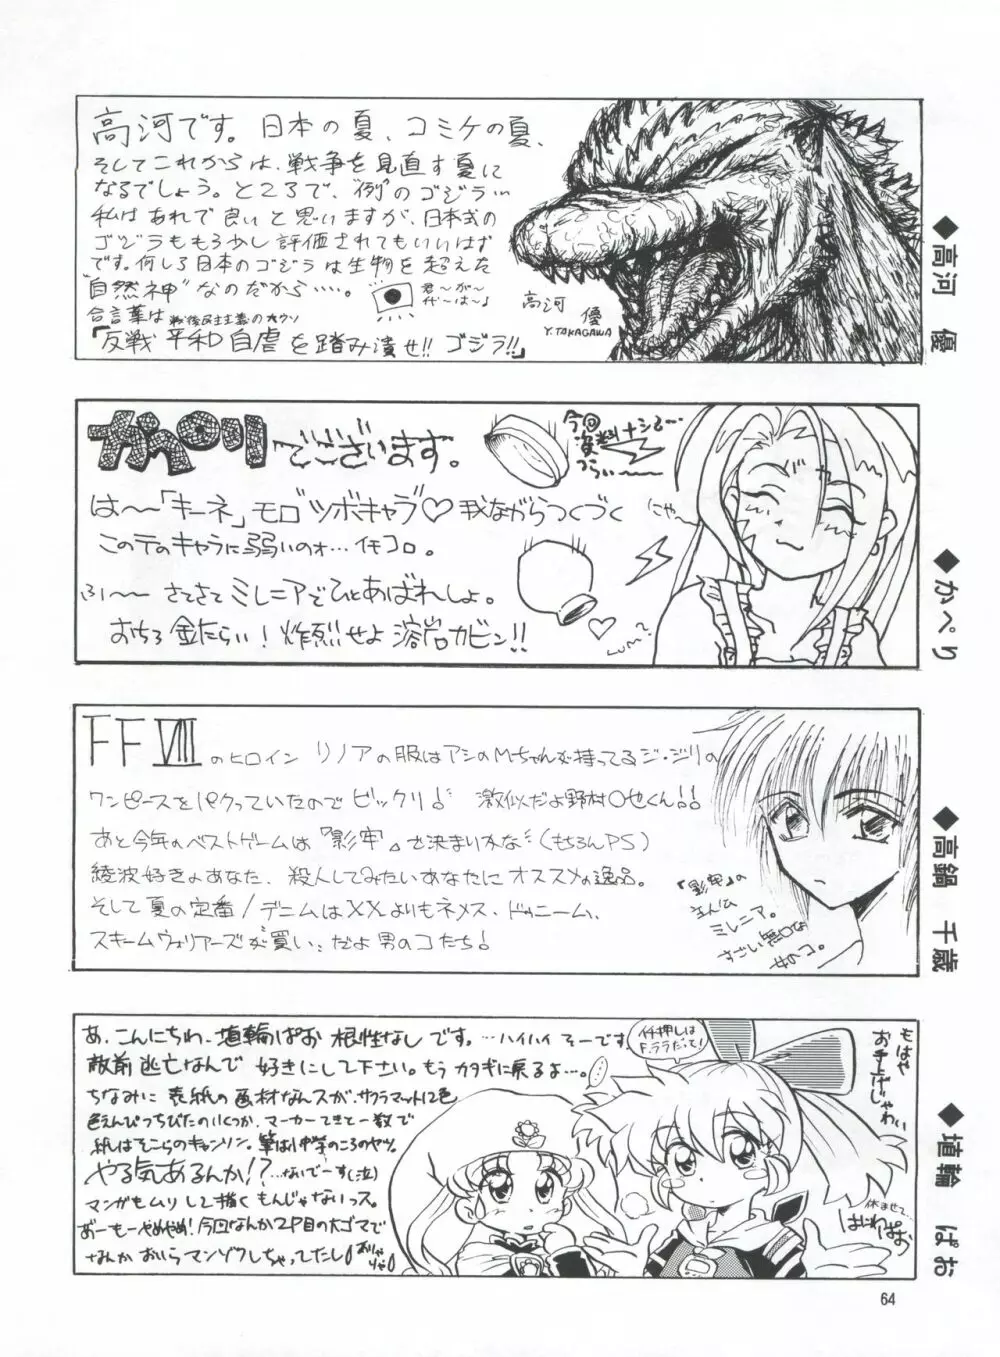 高河です。日本の夏、コミケの夏、
そしてこれからは、戦争を見直す夏に
なるでしょう。ところで、"例"のゴジラ…
私はあれで良いと思いますが、日本式の
ゴジラももう少し評価されてもいいはず
です。何しろ日本のゴジラは生物を超えた
"自然神"なのだから…。
君〜が〜
代〜は〜♪
合言葉は
戦後民主主義の
「反戦平和自虐を踏み潰せ!!ゴジラ!!」
高河 優
Y.TAKAGAWA
◆高河 優
かぺりでございます。
今回
資料ナシで…
つらい〜〜
は〜〜「キーネ」モロツボキャラ♡我ながらつくづく
このテのキャラに弱いのォ…イモコロ。
ふい〜〜 さてさてミレニアでひとあばれしょ。
おちろ金だらい！炸烈せよ溶岩カビン!!
にゃ〜
◆かぺり
FFⅧのヒロイン リノアの服はアシのMちゃんが持ってるジ・ジリの
ワンピースをパクっていたのでビックリ!! 激似だよ野村○也くん!!
あと今年のベストゲームは『影牢』で決まりかな…(もちろんPS)
綾波好きのあなた、殺人してみたいあなたにオススメの逸品。
そして夏の定番/デニムはXXよりもネメス、ドゥニーム、
スキームウォリアーズが買い、だよ男のコたち!
『影牢』の
主人公
ミレニア。
すごい無口な
女のコ。
◆高鍋 千歳
あ、こんにちわ、埴輪ぱお 根性なしです。…ハイハイそーです、
敵前逃亡なんで 好きにして下さい。もうカタギに戻るよ…。
ちなみに 表紙の画材なんスが、サクラマット12色
色えんぴつちびたのいくつか、マーカーてきと一数で
紙はそこらのキャンソン。筆は中学のころのヤツ。
やる気あるんか!?…ないでーす(泣)
マンガもムリして描くもんじゃないっス。
あーもーやめやめ!今回なんか2P目の大ゴマで
なんかおいらマンゾクしちゃってたし!
イチ押しは
F.ララだって!
もはや
お手上げじゃわい
休ませて…
はにわぱお
◆埴輪 ぱお
64